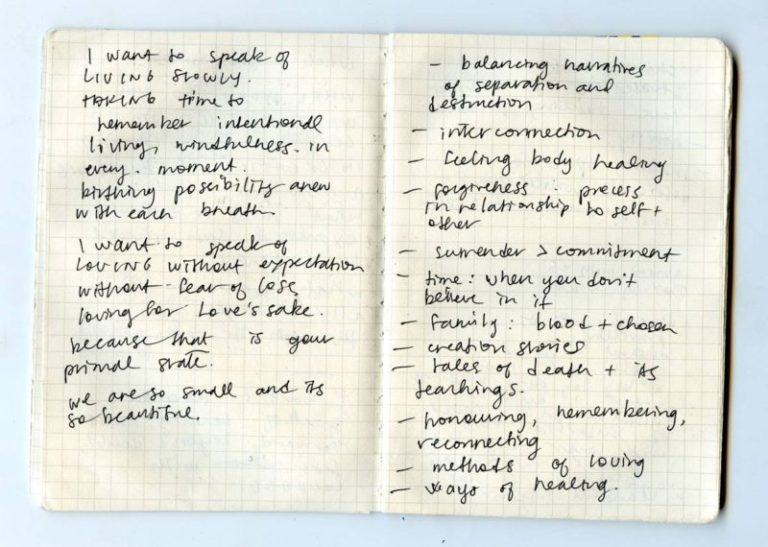 I want to speak of
LIVING SLOWLY.
TAKING time to
remember intentional
living, mindfulness. in
every. moment.
birthing possibility anew
with each breath
I want to speak of
LOVING without expectation
without fear of loss
loving for Love's sake.
because that is your
primal state.
we are so small and its
so beautiful.
- balancing narratives
of separation and
destruction
- interconnection
- feeling body healing
- forgiveness : process
in relationship to self +
other
- surrender > commitment
- time : when you don't
believe in it
- family : blood + chosen
- creation stories
- tales of death + its
teachings.
- honouring, remembering,
reconnecting
- methods of loving
- ways of healing.